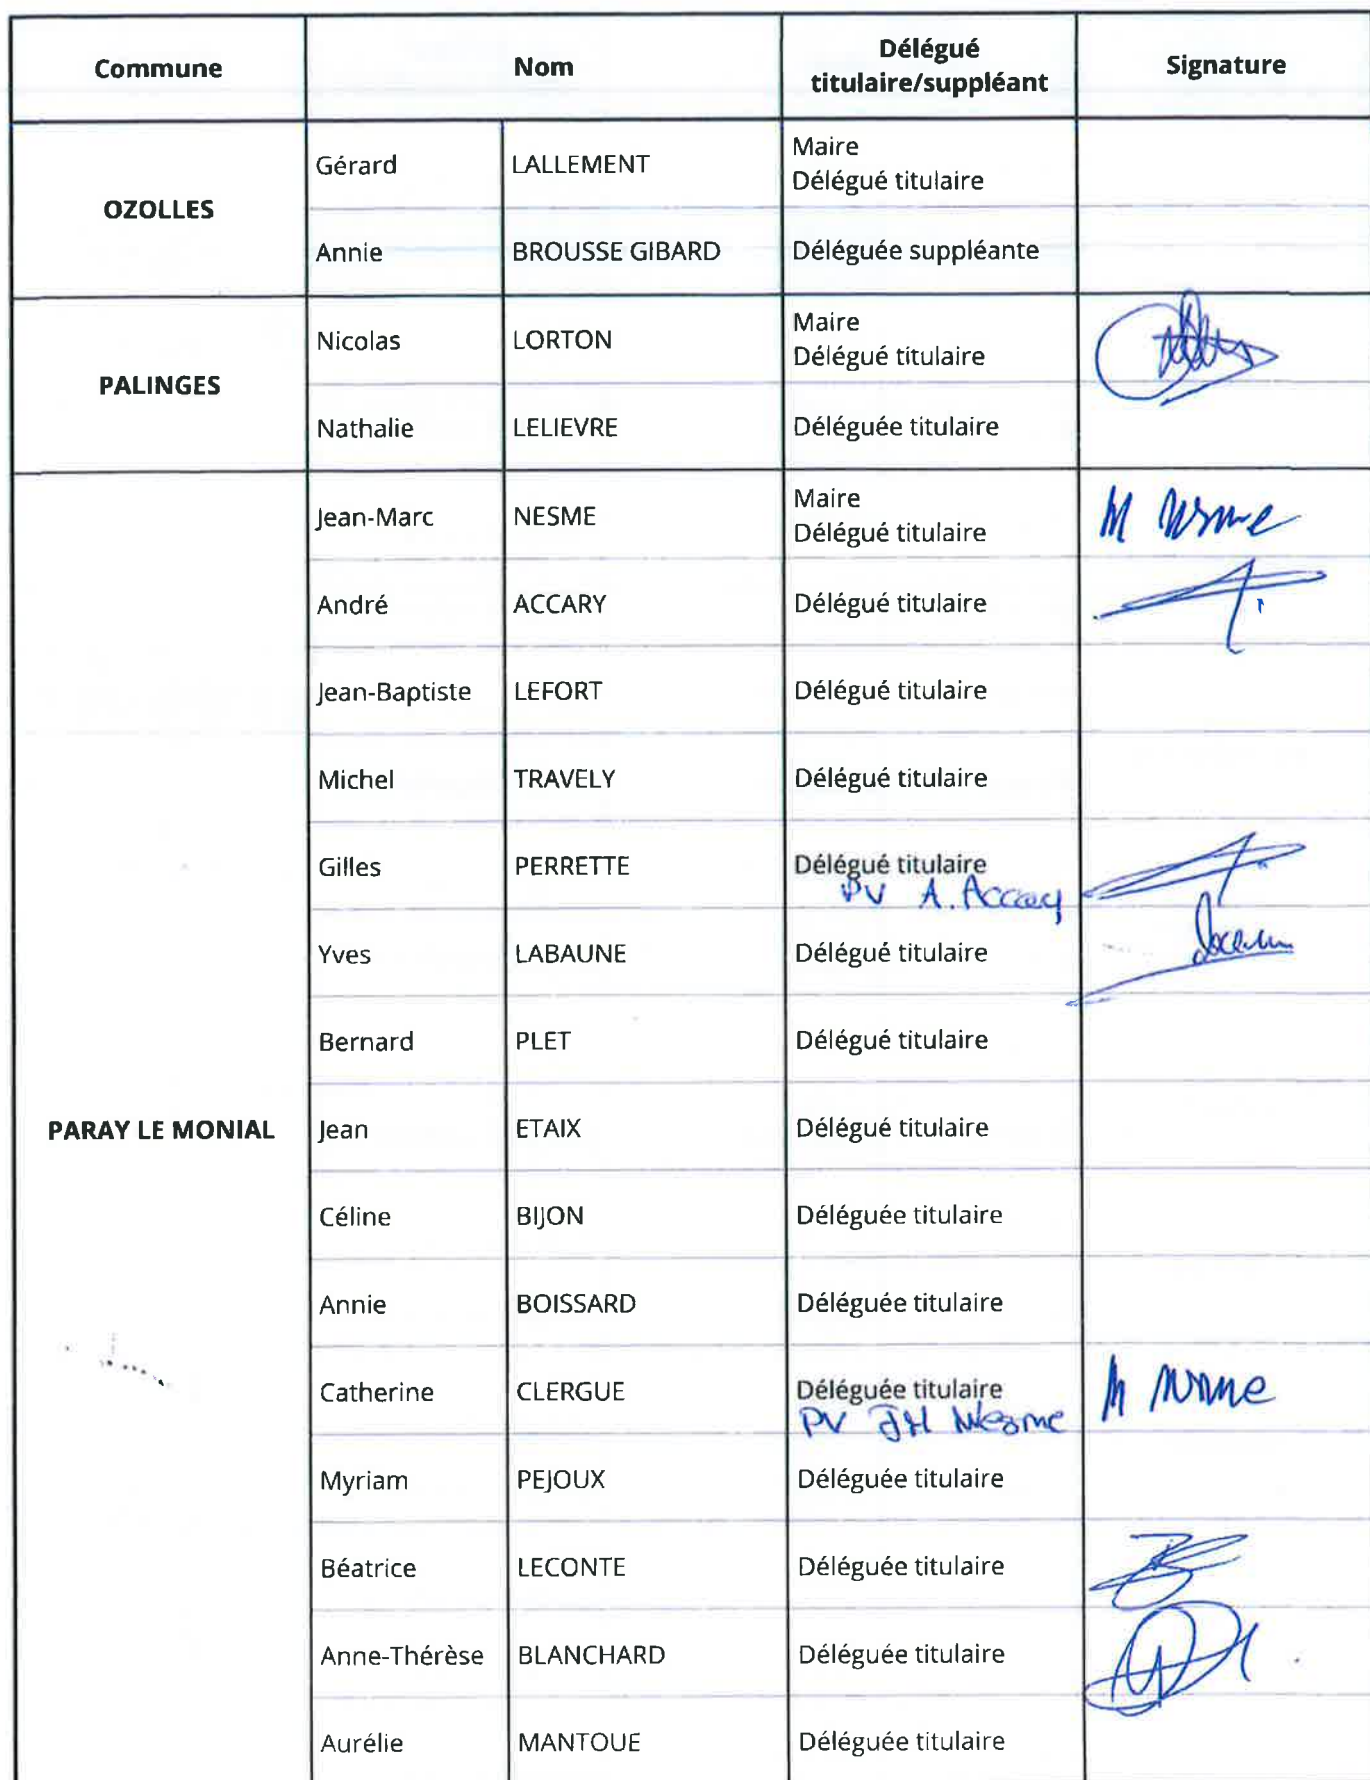 Commune Nom Délégué titulaire/suppléant Signature
OZOLLES
Gérard LALLEMENT Maire
Délégué titulaire
Annie BROUSSE GIBARD Déléguée suppléante
PALINGES
Nicolas LORTON Maire
Délégué titulaire
Nathalie LELIEVRE Déléguée titulaire
PARAY LE MONIAL
Jean-Marc NESME Maire
Délégué titulaire
André ACCARY Délégué titulaire
Jean-Baptiste LEFORT Délégué titulaire
Michel TRAVELY Délégué titulaire
Gilles PERRETTE Délégué titulaire
PV A. Accary
Yves LABAUNE Délégué titulaire
Bernard PLET Délégué titulaire
Jean ETAIX Délégué titulaire
Céline BIJON Déléguée titulaire
Annie BOISSARD Déléguée titulaire
Catherine CLERGUE Déléguée titulaire
PV JM Nesme
Myriam PEJOUX Déléguée titulaire
Béatrice LECONTE Déléguée titulaire
Anne-Thérèse BLANCHARD Déléguée titulaire
Aurélie MANTOUE Déléguée titulaire